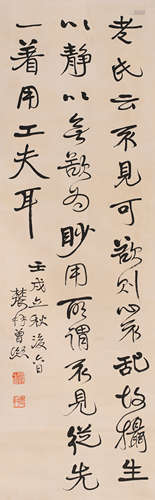 老氏云不見可欲則心不亂故攝生
以靜以無欲為眇用所謂不見從先
一着用工夫耳
壬戌立秋後六日
農髯曾熙